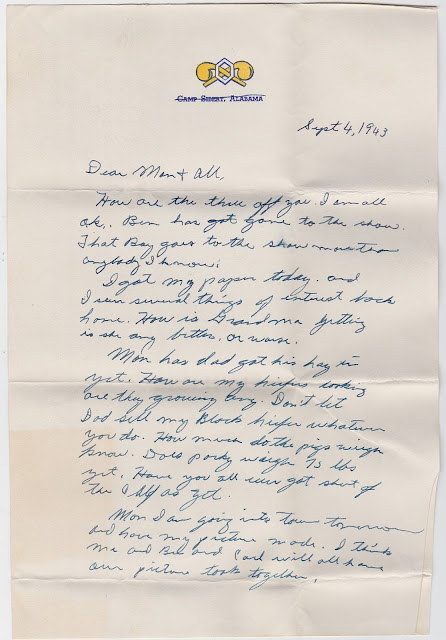 CAMP SIBERT, ALABAMA
Sept 4, 1943
Dear Mom & All,
How are the three off you. I am all
ok,. Ben has got gone to the show.
That Boy goes to the show more than
anybody I know.
I got my paper today. and
I seen several things of interest back
home. How is Grandma getting
is she any better, or worse.
Mom has dad got his hay in
yet. How are my heifers looking
are they growing any. Don't let
Dad sell my Black heifer whatever
you do. How much do the pigs weigh
know. Does porky weigh lbs
yet. Have you all ever got shut of
the as yet.
Mom I am going into town tomorrow
and have my picture made. I think
me and Ben and Carl will all have
our picture took together.